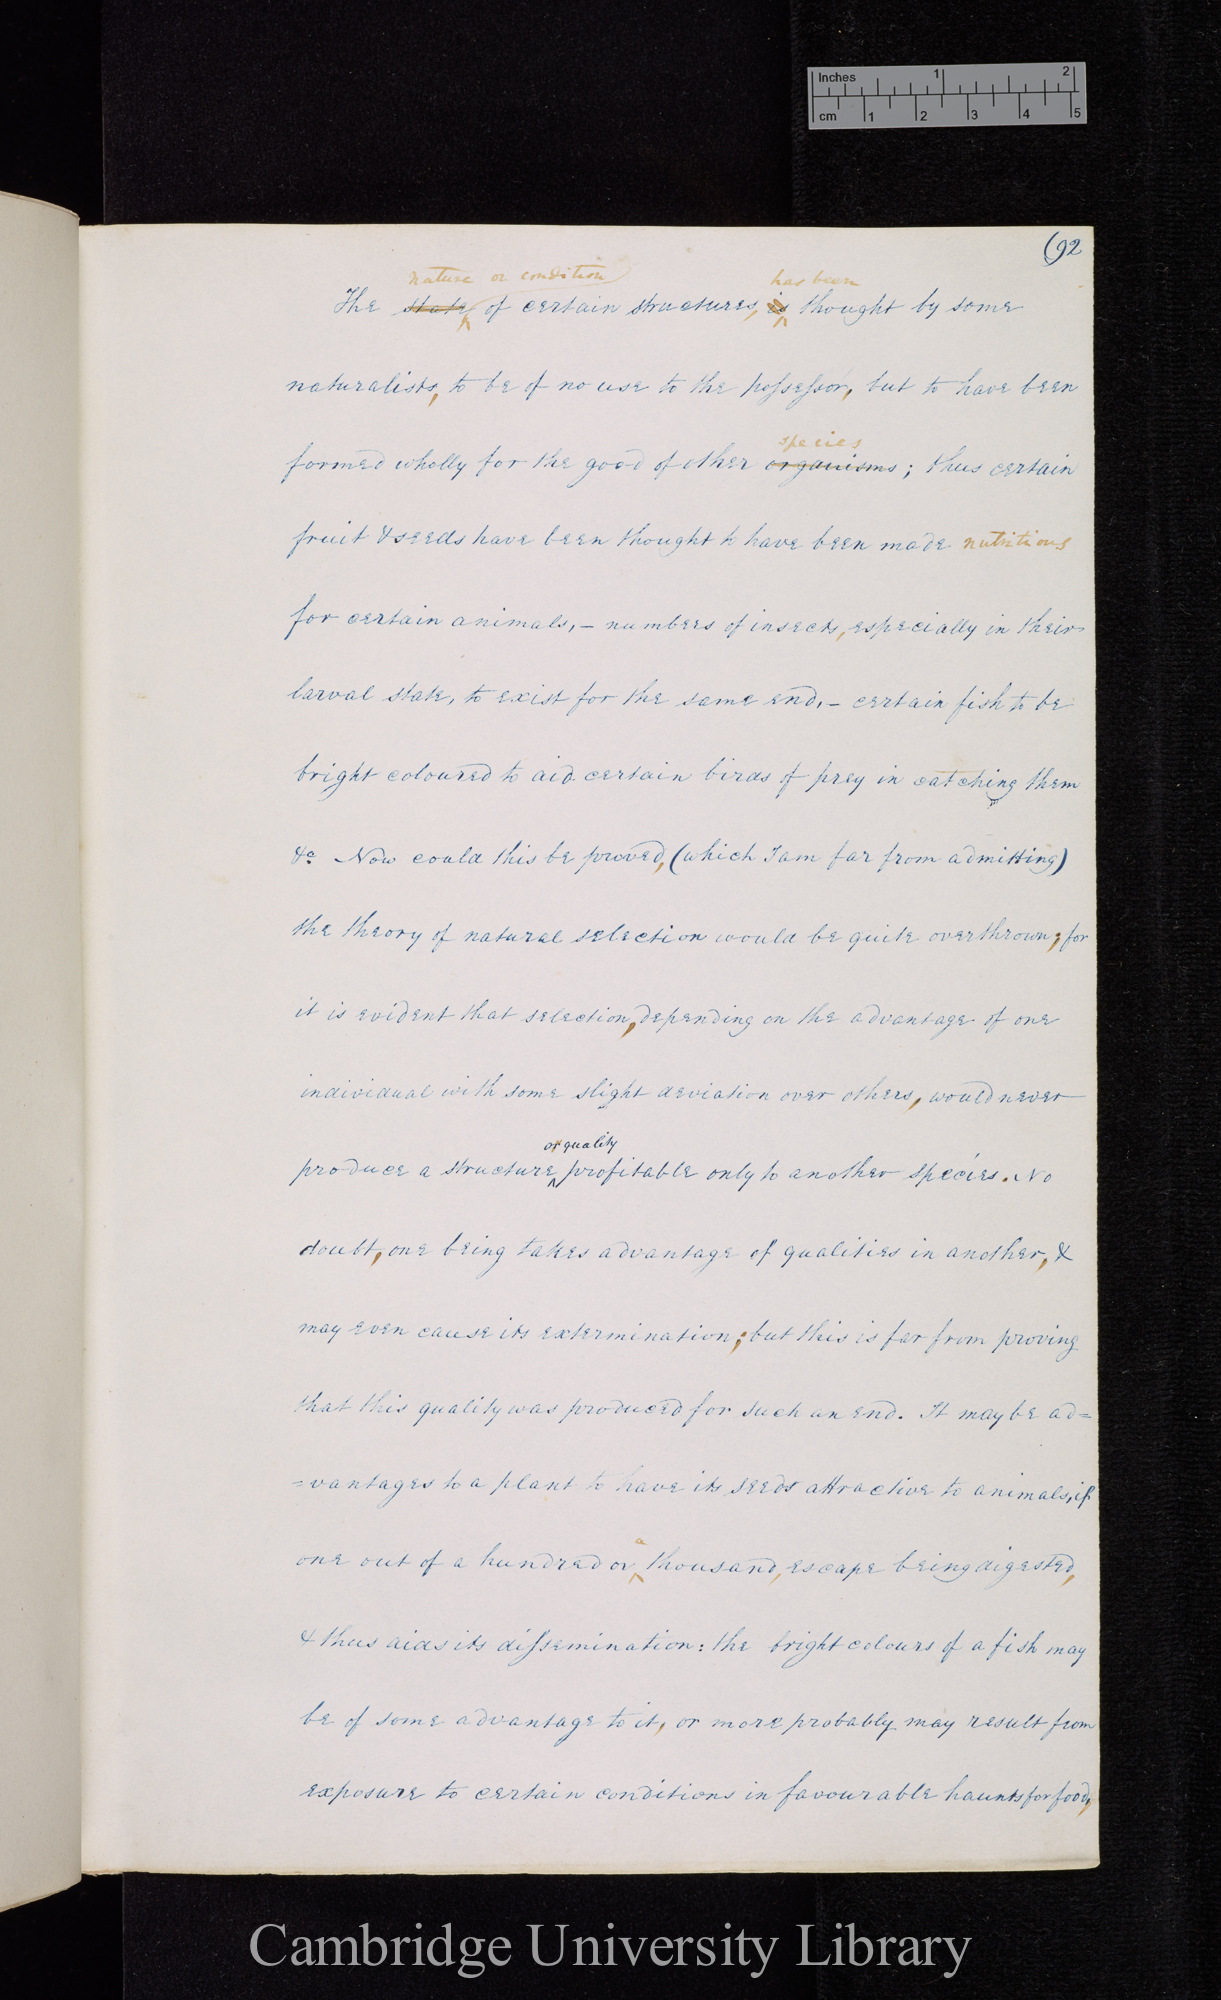 Inches 1 2
cm 1 2 3 4 5
(92
nature or condition has been
The state of certain structures, is thought by some
naturalists, to be of no use to the possessor, but to have been
species
formed wholly for the good of other organisms; thus certain
fruit & seeds have been thought to have been made nutritious
for certain animals,– numbers of insects, especially in their
larval state, to exist for the same end,– certain fish to be
bright coloured to aid certain birds of prey in catching them
&c Now could this be proved, (which I am far from admitting)
the theory of natural selection would be quite overthrown; for
it is evident that selection, depending on the advantage of one
individual with some slight deviation over others, would never
or quality
produce a structure profitable only to another species. No
doubt, one being takes advantage of qualities in another, &
may even cause its extermination; but this is far from proving
that this quality was produced for such an end. It may be ad=
=vantages to a plant to have its seeds attractive to animals, if
a
one out of a hundred or thousand, escape being digested,
& thus aids its dissemination: the bright colours of a fish may
be of some advantage to it, or more probably may result from
exposure to certain conditions in favourable haunts for food,
Cambridge University Library